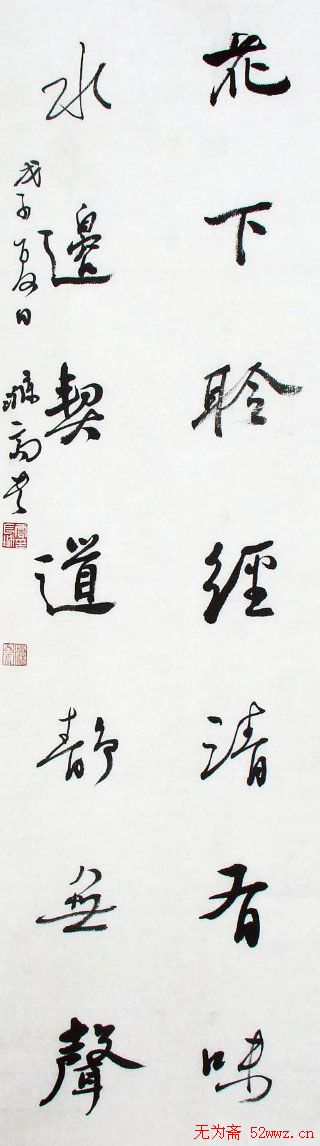 花下聆經清有味
水邊契道靜無聲
戊子夏日
无为斋 52wwz.cn